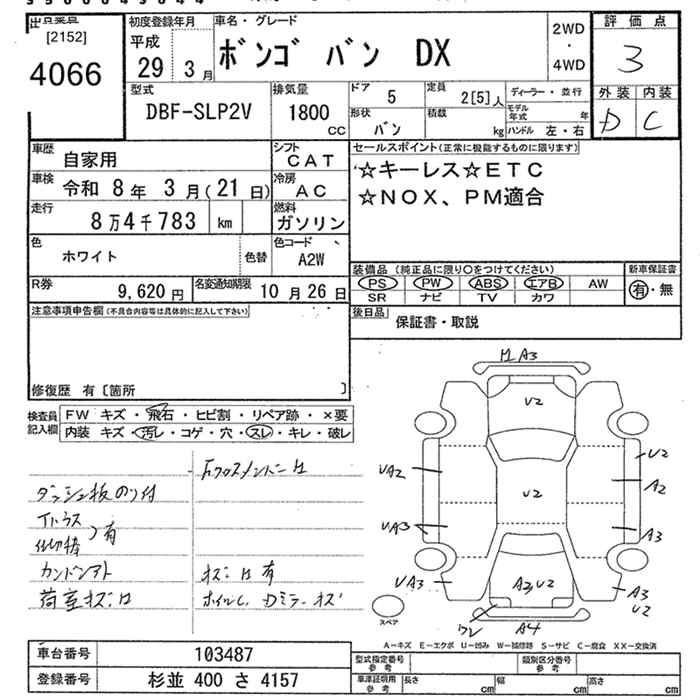 出品票
[2152]
4066
初度登録年月
平成 29 3 月
車名・グレード
ボンゴ バン DX
2WD
・
4WD
評価点
3
外装 内装
D C
型式
DBF-SLP2V
排気量
1800 CC
ドア
5
定員
2[5]人
形状
バン
積載
kg
ディーラー・並行
モデル年式 年
ハンドル 左・右
車歴
自家用
シフト
CAT
車検
令和 8 年 3 月(21 日)
冷房
AC
走行
8 万 4 千 783 km
燃料
ガソリン
色
ホワイト
色替
色コード
A2W
R券
9,620 円
名変通知期限
10 月 26 日
セールスポイント(正常に機能するものに限ります)
☆キーレス☆ETC
☆NOX、PM適合
装備品(純正品に限り○をつけてください)
新車保証書
PS PW ABS エアB AW
有・無
SR ナビ TV カワ
後日品
保証書・取説
注意事項申告欄(不具合内容等は具体的に記入して下さい)
修復歴 有〔箇所 〕
検査員記入欄
FW キズ・飛石・ヒビ割・リペア跡・×要
内装 キズ・汚レ・コゲ・穴・スレ・キレ・破レ
ダッシュ板のり付
有
キズ H 有
荷室キズ H
A3
U2
U2
U2
UA2
A2
UA3
A3
UA3
A3
U2
A3 U2
A4
スペア
A－キズ E－エクボ U－凹み W－補修跡 S－サビ C－腐食 XX－交換済
車台番号
103487
登録番号
杉並 400 さ 4157
型式指定番号
参考
類別区分番号
参考
車津証明用
参考
長さ cm
幅 cm
高さ cm